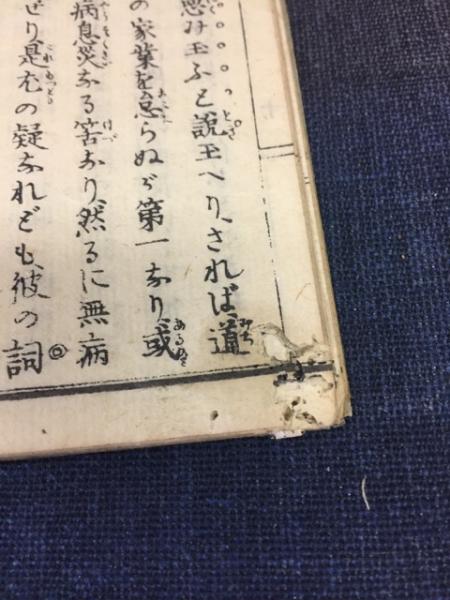 愍み玉ふと説玉へり、されば、道
の家業を怠らぬが第一なり、或
病息災なる筈なり、然るに無病
せり是尤の疑なれども、彼の詞